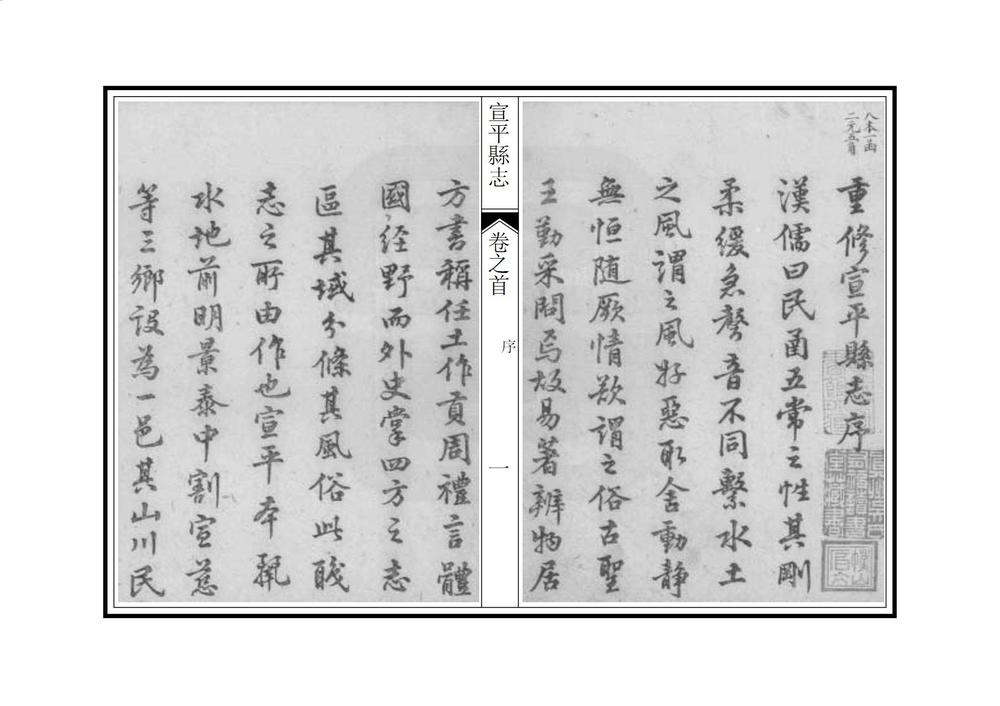 八本一函
二元五角
重修宣平縣志序
漢儒曰民函五常之性其剛
柔緩急聲音不同繫水土
之風謂之風好惡取舍動靜
無恒随厥情欲謂之俗古聖
王勤采問焉故易著辨物居
宣平縣志
卷之首
序
一
方書稱任土作貢周禮言體
國経野而外史掌四方之志
區其域分條其風俗此職
志之所由作也宣平本麗
水地前明景泰中割宣慈
等三鄉設為一邑其山川民